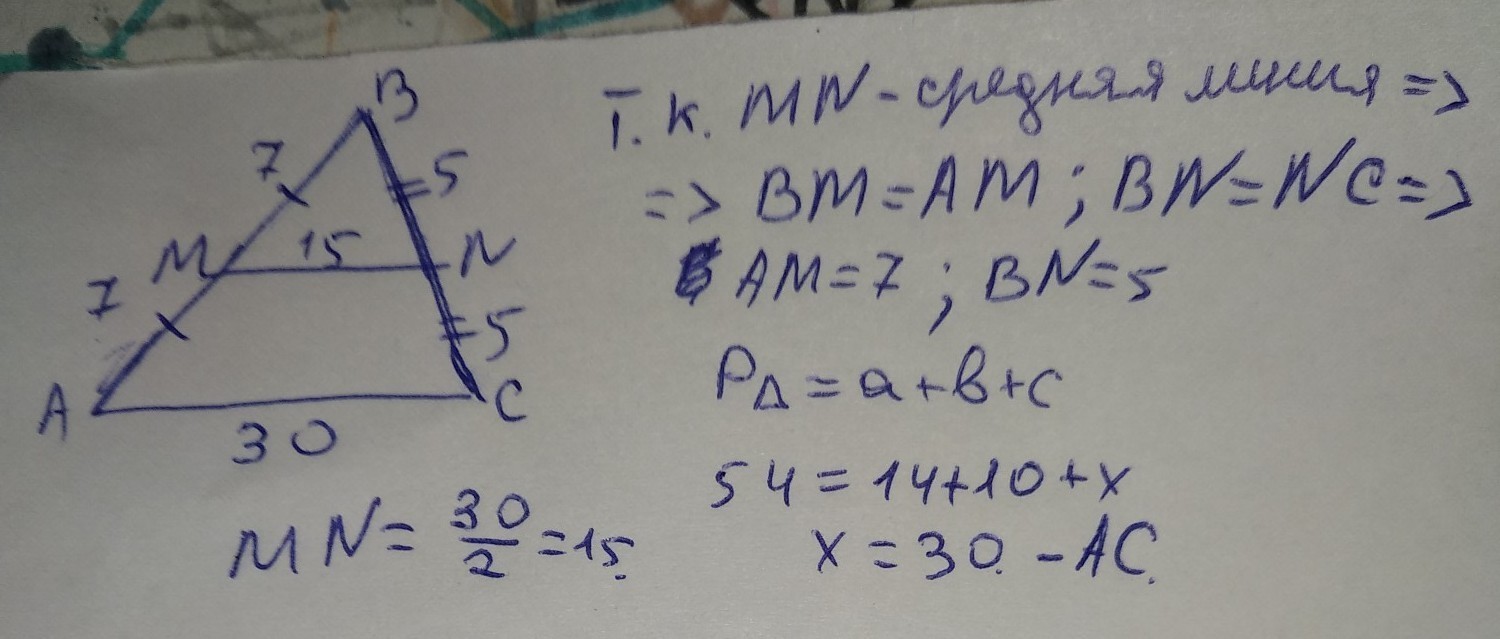 B
7
5
M
15
N
7
5
A
C
30
MN = 30/2 = 15.
Т. к. MN - средняя линия =>
=> BM = AM ; BN = NC =>
AM = 7 ; BN = 5
P△ = a + b + c
54 = 14 + 10 + x
x = 30. - AC.